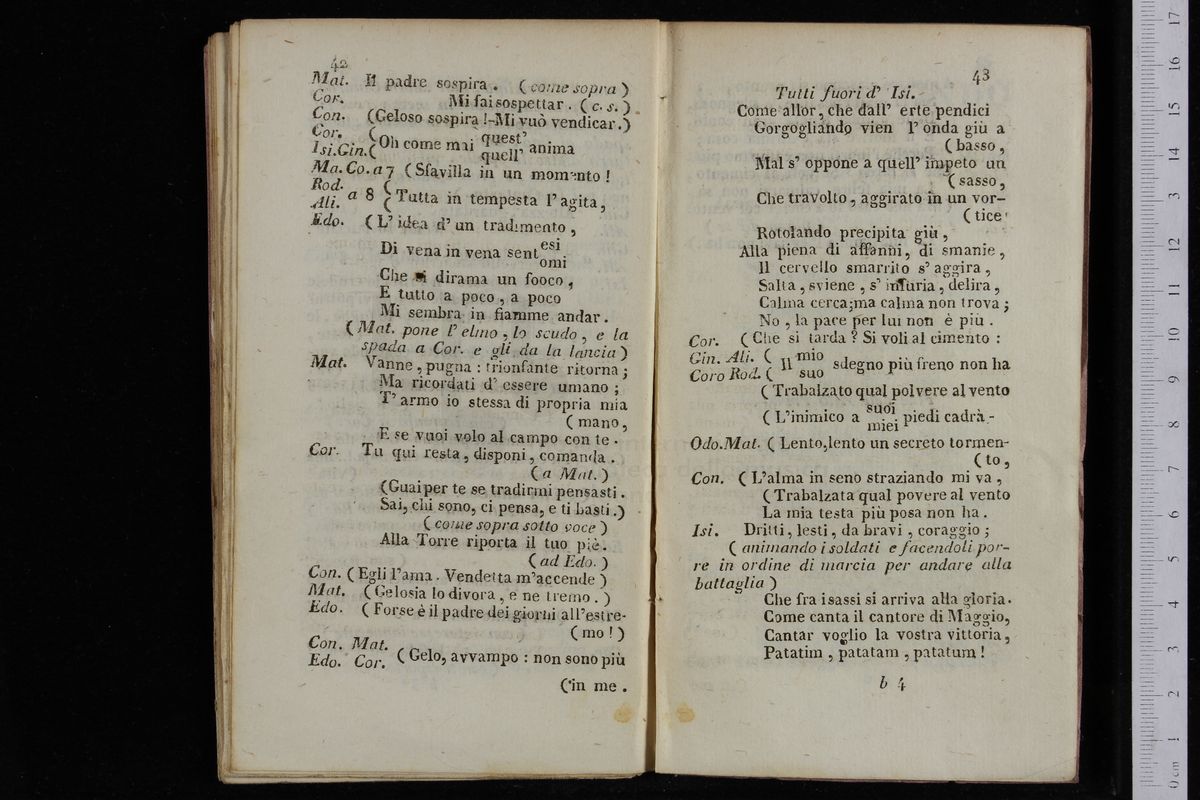 42
Mat. Il padre sospira . ( come sopra )
Cor. Mi fai sospettar . ( c. s. )
Con. (Geloso sospira !-Mi vuò vendicar.)
Cor. (
Isi.Gin.( Oh come mai quest' quell' anima
Ma. Co. a 7 ( Sfavilla in un momento !
Rod. (
Ali. a 8 ( Tutta in tempesta l' agita,
Edo. ( L' idea d' un tradimento ,
Di vena in vena sent esi omi
Che si dirama un fooco ,
E tutto a poco , a poco
Mi sembra in fiamme andar.
( Mat. pone l' elmo , lo scudo , e la
spada a Cor. e gli da la lancia )
Mat. Vanne , pugna : trionfante ritorna ;
Ma ricordati d' essere umano ;
T' armo io stessa di propria mia
( mano,
E se vuoi volo al campo con te .
Cor. Tu qui resta , disponi , comanda .
( a Mat. )
(Guai per te se tradirmi pensasti .
Sai, chi sono, ci pensa, e ti basti.)
( come sopra sotto voce )
Alla Torre riporta il tuo piè.
( ad Edo. )
Con. ( Egli l'ama . Vendetta m'accende )
Mat. ( Gelosia lo divora , e ne tremo . )
Edo. ( Forse è il padre dei giorni all'estre-
( mo ! )
Con. Mat.
Edo. Cor. ( Gelo, avvampo : non sono più
( in me .
43
Tutti fuori d' Isi.
Come allor, che dall' erte pendici
Gorgogliando vien l' onda giù a
( basso ,
Mal s' oppone a quell' impeto un
( sasso ,
Che travolto , aggirato in un vor-
( tice
Rotolando precipita giù ,
Alla piena di affanni, di smanie ,
Il cervello smarrito s' aggira ,
Salta , sviene , s' infuria , delira ,
Calma cerca;ma calma non trova ;
No , la pace per lui non è più .
Cor. ( Che si tarda ? Si voli al cimento :
Gin. Ali. (
Coro Rod. ( Il mio suo sdegno più freno non ha
( Trabalzato qual polvere al vento
( L'inimico a suoi miei piedi cadrà -
Odo.Mat. ( Lento,lento un secreto tormen-
( to ,
Con. ( L'alma in seno straziando mi va ,
( Trabalzata qual povere al vento
La mia testa più posa non ha .
Isi. Dritti , lesti , da bravi , coraggio ;
( animando i soldati e facendoli por-
re in ordine di marcia per andare alla
battaglia )
Che fra i sassi si arriva alla gloria.
Come canta il cantore di Maggio,
Cantar voglio la vostra vittoria,
Patatim , patatam , patatum !
b 4